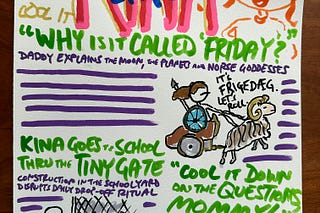 COOL IT
"WHY IS IT CALLED 'FRIDAY'?"
DADDY EXPLAINS THE MOON, THE PLANETS AND NORSE GODDESSES
IT'S
FRIGEDÆG.
LET'S
ROLL.
KINA GOES TO SCHOOL
THRU THE TINY GATE
CONSTRUCTION IN THE SCHOOLYARD
DISRUPTS DAILY DROP-OFF RITUAL
"COOL IT DOWN
ON THE QUESTIONS,
MOMMY"